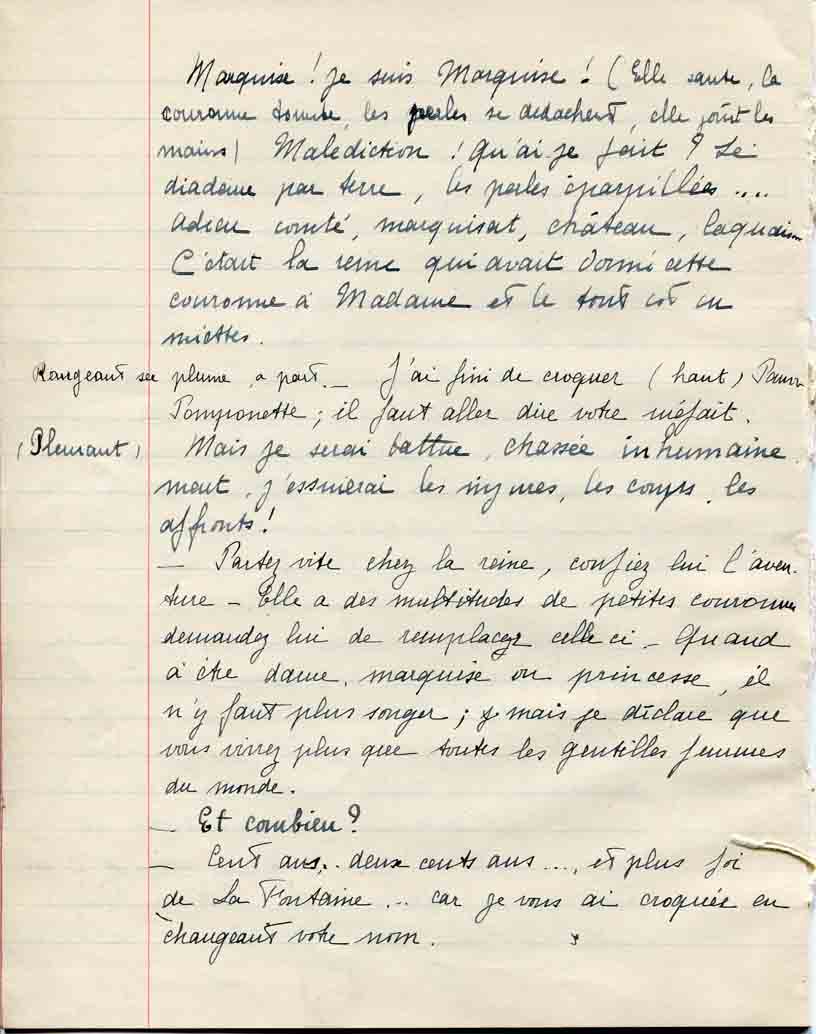 Marquise ! je suis Marquise ! (Elle saute, la
couronne tombe, les perles se détachent, elle joint les
mains) Malediction ! Qu'ai je fait ? Le
diadème par terre, les perles éparpillées ....
Adieu comté, marquisat, château, laquais
C'était la reine qui avait donné cette
couronne à Madame et le tout est en
miettes.
Rangeant sa plume, à part. _ J'ai fini de croquer (haut) Pauvre
Pomponette ; il faut aller dire votre méfait.
(Pleurant) Mais je serai battue, chassée inhumaine
ment, j'essuierai les injures, les coups, les
affronts !
_ Partez vite chez la reine, confiez lui l'aven-
ture _ Elle a des multitudes de petites couronnes
demandez lui de remplacer celle ci _ Quand
à être dame, marquise ou princesse, il
n'y faut plus songer ; mais je déclare que
vous vivrez plus que toutes les gentilles femmes
du monde.
_ Et combien ?
_ Cent ans,.. deux cents ans ...., et plus foi
de La Fontaine ... car je vous ai croquée en
changeant votre nom.